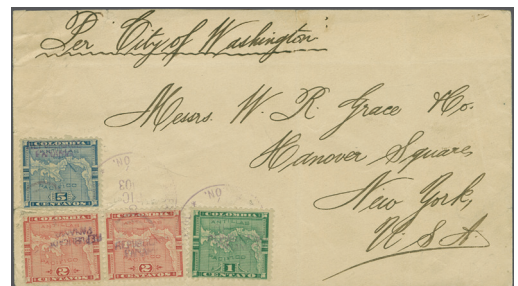 Per "City of Washington"
Messrs. W. R. Grace & Co.
Hanover Square,
New York,
U.S.A.
COLOMBIA
5
CENTAVOS
COLOMBIA
2
CENTAVOS
COLOMBIA
2
CENTAVOS
COLOMBIA
1
CENTAVO
03